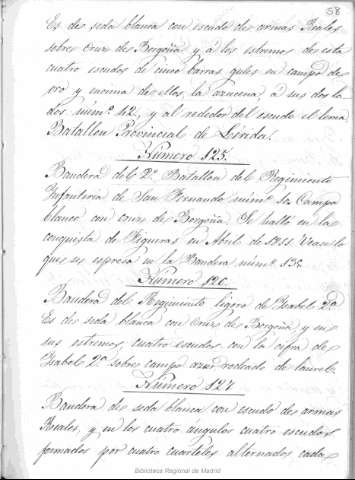 58
Es de seda blanca con escudo de armas Reales
sobre Cruz de Borgoña, y a los estremos de esta
cuatro escudos de cinco barras gules su campo de
oro y encima de ellos la azucena, a sus dos la
dos num.º 42, y al rededor del escudo el lema
Batallon Provincial de Lerida.
Numero 125.
Bandera del 2.º Batallon del Regimiento
Infanteria de San Fernando num.º Campo
blanco con cruz de Borgoña. Se halló en la
conquista de Figueras en Abril de 1811. Vease lo
que se espresa en la Bandera num.º
Numero 126.
Bandera del Regimiento ligero de Isabel 2.ª
Es de seda blanca con Cruz de Borgoña, y en
sus estremos, cuatro escudos con la cifra de
Isabel 2.ª sobre campo azul rodeado de laurel.
Numero 127
Bandera de seda blanca con escudo de armas
Reales, y en los cuatro angulos cuatro escudos
formados por cuatro cuarteles alternados cada
Biblioteca Regional de Madrid